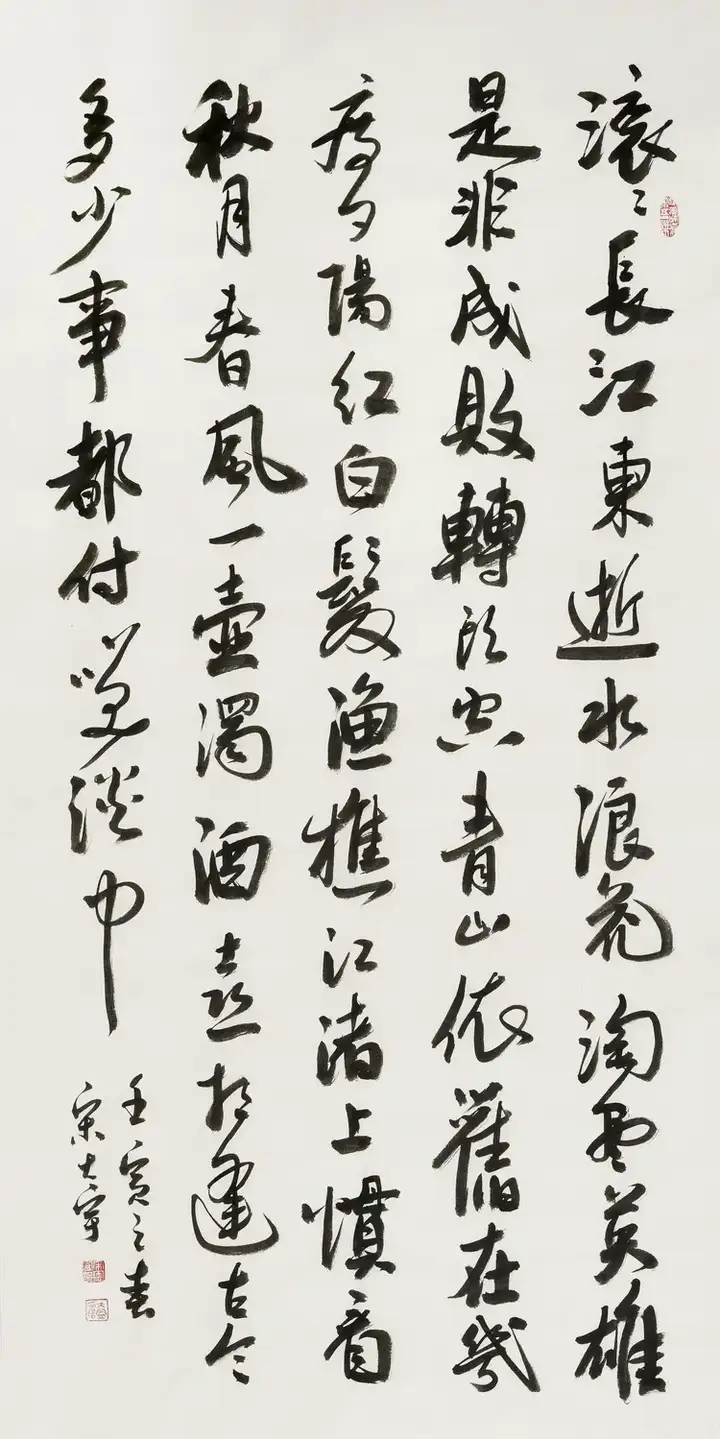 滾〻長江東逝水浪花淘盡英雄
是非成敗轉頭空青山依舊在幾
度夕陽紅白髮漁樵江渚上慣看
秋月春風一壺濁酒喜相逢古今
多少事都付笑談中
壬寅之春
宋